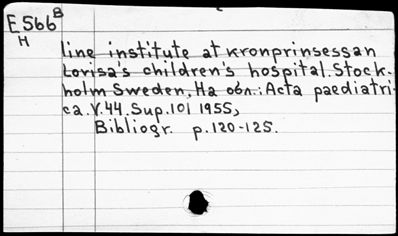 E566 B
H
line institute at Kronprinsessan
Lovisa's children's hospital. Stock.
holm Sweden, На обл.: Acta paediatri-
ca. V.44. Sup. 101 1955,
Bibliogr. p. 120-125.